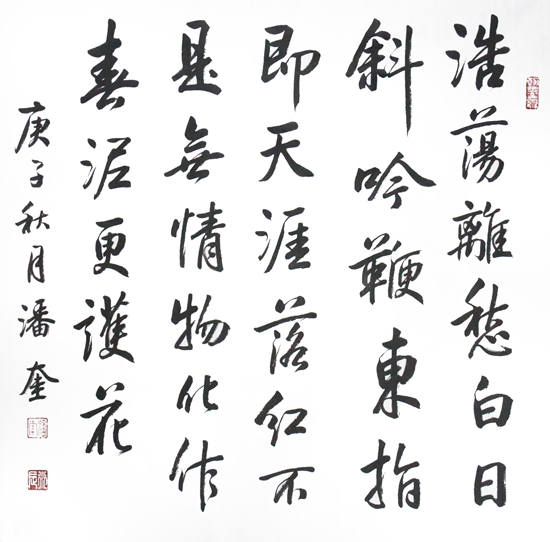 浩蕩離愁白日
斜吟鞭東指
即天涯落红不
是無情物化作
春泥更護花
庚子秋月潘奎